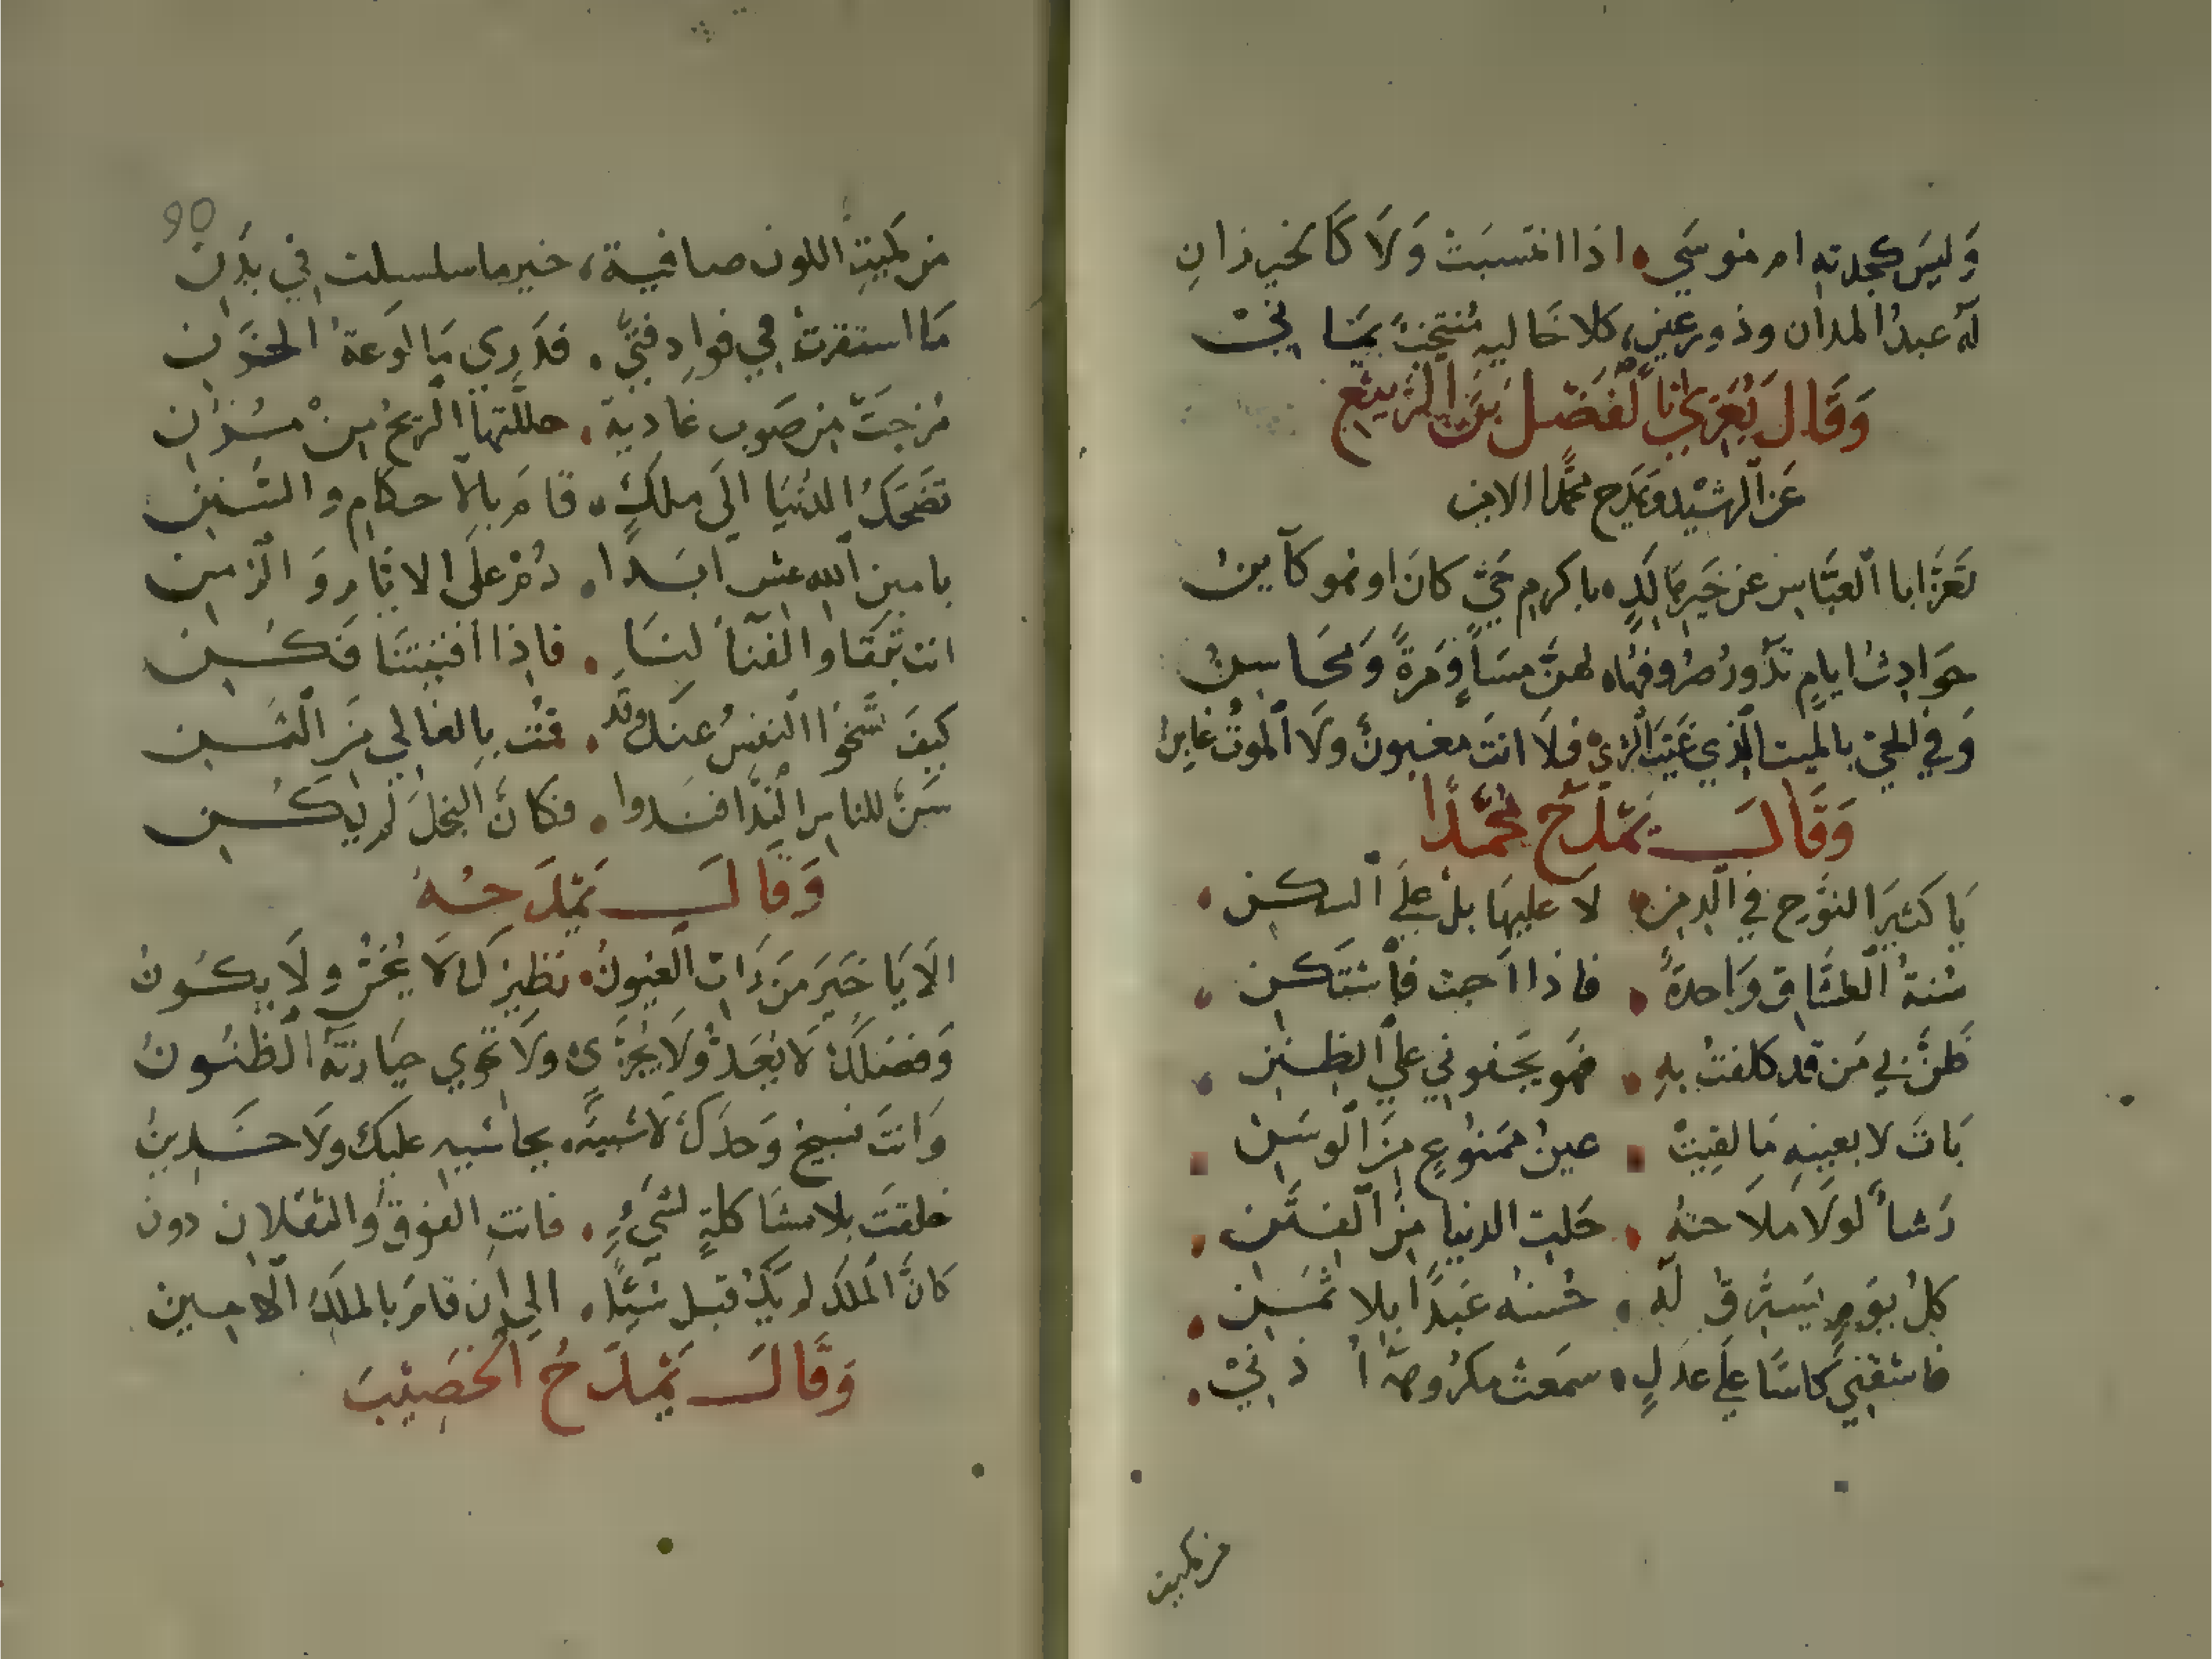 وَليسَ كجدته ام موسَي اذا انتسبَتْ وَلَا كَالخيزرانِ
لهُ عبدُ المدان وذو رعين، كلا خاليه مُنتجبٌ يمَانيْ
وَقَالَ يُعَزي اَبا الفَضْل بن الرَّبيْع
عَن الرشيْد ويَمدح محمَّدا الامين
تَعَزَّ ابا العبَّاس عن خَيرِ هَالكٍ باكرمِ حَيٍّ كانَ او هُو كآينُ
حَوَادِثُ ايامٍ تدُورُ صُروفهُا لهنَّ مسَاوٍ مَرةً وَمحَاسِنُ
وَفي الحيّ بالميت الذي غيَّبَ الثريٰ فلا انتَ مغبونٌ ولَا الموتُ غابنُ
وَقَالَ يَمْدَحُ مُحَمَّدًا
يَا كثيرَ النَّوْحِ في الدِمنِ لا عليهَا بلْ علَي السكنِ
سُنةُ العشَّاقِ وَاحدةٌ فاذا احببتَ فاسْتَكنِ
ظنَّ بي مَن قد كلفتُ بهِ فهو يَجفوني علي الظِننِ
بَاتَ لا يعنيهِ مَا لقيتْ عينُ ممنُوعٍ منَ الوسَنِ
رَشاٌ لولَا ملَاحتهُ خلتِ الدنيا منَ الفتَنِ
كلُ يومٍ يَسترقُ لهُ حُسنهُ عَبدًا بلا ثمَنِ
فاسْقني كاسًا علَي عذلٍ سمعتْ مكرُوههُ اُذنيْ
من كميت
90
من كميتِ اللون صافية، خير ما سلسلت في بدَنِ
مَا استقرتْ في فوادِ فتيً فدَرِي مَا لوَعةُ الحزَنِ
مُزجتْ من صَوبِ غاديةٍ حللَتهَا الريحُ منْ مُزنِ
تضحَكُ الدُنيَا الَي ملكٍ قامَ بالاحكامِ والسُننِ
يامين الله عش ابدًا دُمْ علَي الايَّامِ وَالزمنِ
انت تَبقَا والفنَاءُ لنَا فاِذا افنيتنَا فَكُنِ
كيفَ تسْخوا النفسُ عنكَ وقَد قمْت بِالغالي منَ الثمَنِ
سَنَّ للناسِ الندَا فندوا فكانَّ البخلَ لم يكُنِ
وَقَالَ يَمْدَحُهُ
الَا يَا خَيرَ مَن رَاتِ العيونُ نظيركَ لَا يُحَسُّ ولَا يكُونُ
وَفضلُكَ لَا يُحَدُّ ولَا يُجزَّىٰ ولَا تحوي حيَازتَهُ الظنُونُ
وَانتَ نسيجُ وَحدِكَ لَا شبيهٌ يحاشيهِ عليكَ ولَا خَدينُ
خلقتَ بلا مشَاكلةٍ لشيءٍ فانتِ الفوقُ والثقَلانِ دون
كانَّ الملكَ لم يكُ قبل شيئًا الي ان قامَ بالملكِ الامين
وَقَالَ يَمْدَحُ الخَصِيْبَ